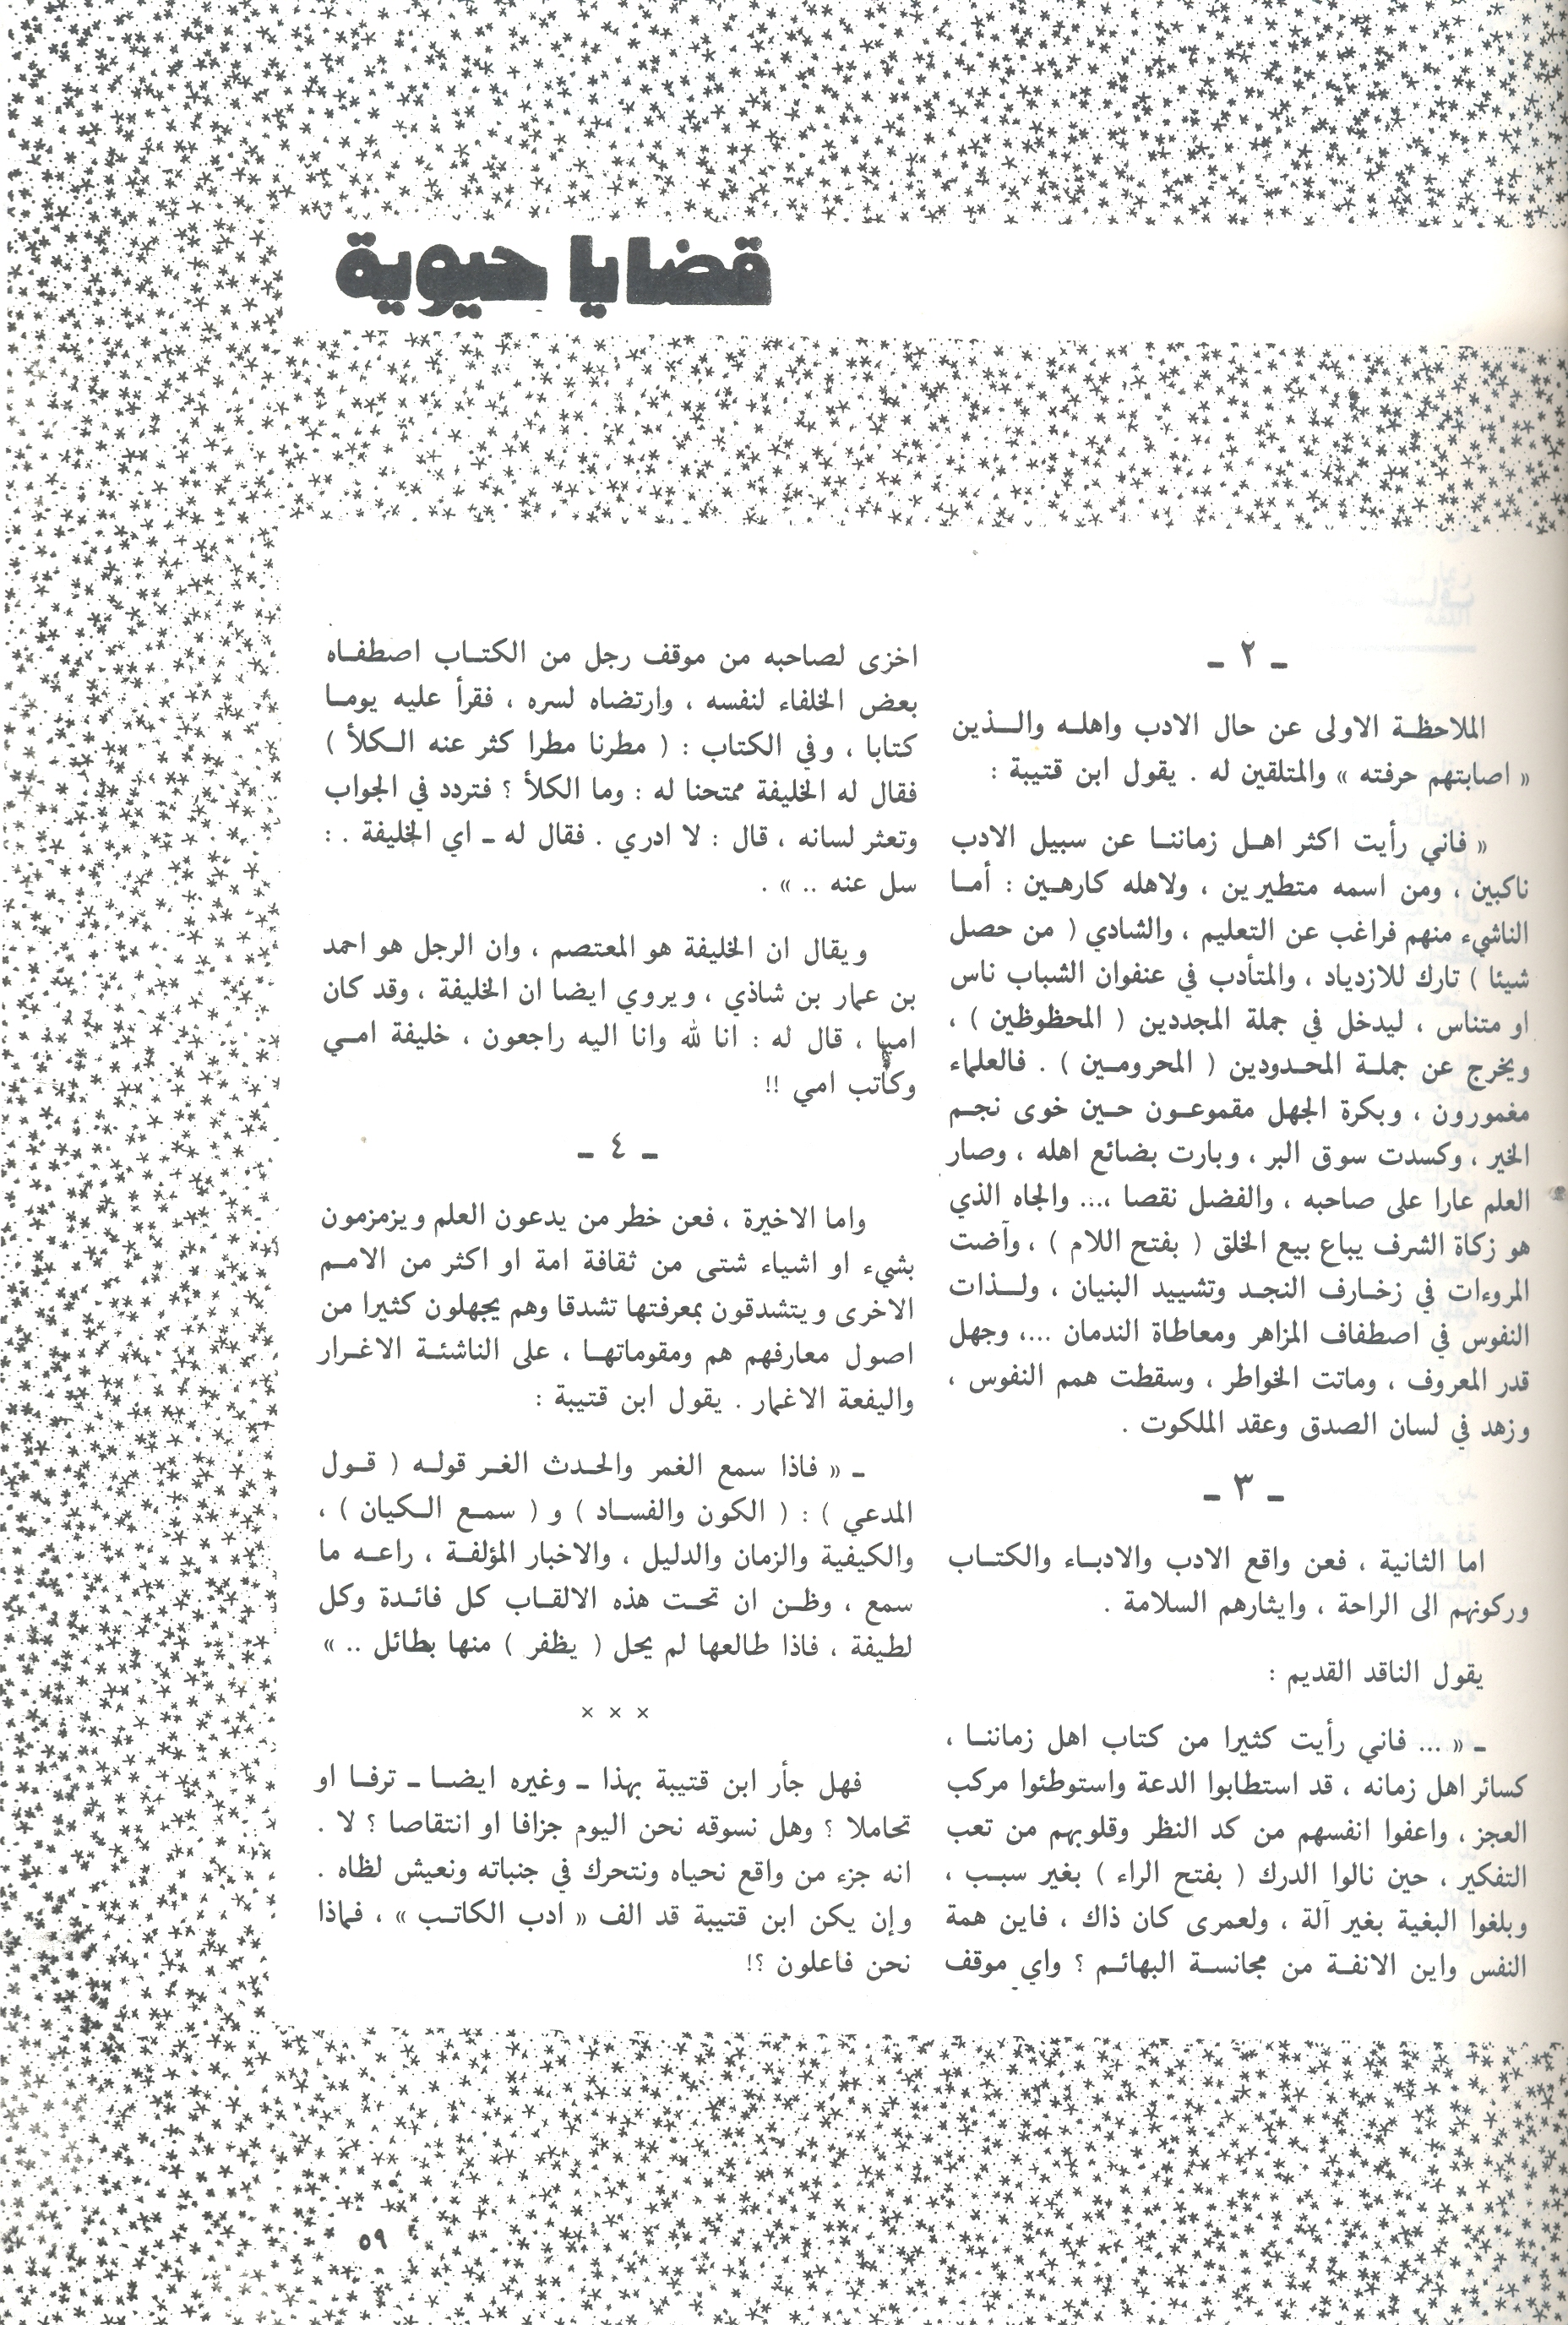 قضايا حيوية
ـ ٢ ـ
الملاحظة الاولى عن حال الادب واهله والذين
« اصابتهم حرفته » والمتلقين له . يقول ابن قتيبة :
« فاني رأيت اكثر اهل زماننا عن سبيل الادب
ناكبين ، ومن اسمه متطيرين ، ولاهله كارهين : أما
الناشيء منهم فراغب عن التعليم ، والشادي ( من حصل
شيئا ) تارك للازدياد ، والمتأدب في عنفوان الشباب ناس
او متناس ، ليدخل في جملة المجددين ( المحظوظين ) ،
ويخرج عن جملة المحدودين ( المحرومين ) . فالعلماء
مغمورون ، وبكرة الجهل مقموعون حين خوى نجم
الخير ، وكسدت سوق البر ، وبارت بضائع اهله ، وصار
العلم عارا على صاحبه ، والفضل نقصا ،... والجاه الذي
هو زكاة الشرف يباع بيع الخلق ( بفتح اللام ) ، وآضت
المروءات في زخارف النجد وتشييد البنيان ، ولذات
النفوس في اصطفاف المزاهر ومعاطاة الندمان ...، وجهل
قدر المعروف ، وماتت الخواطر ، وسقطت همم النفوس ،
وزهد في لسان الصدق وعقد الملكوت .
ـ ٣ ـ
اما الثانية ، فعن واقع الادب والادباء والكتاب
وركونهم الى الراحة ، وايثارهم السلامة .
يقول الناقد القديم :
ـ « ... فاني رأيت كثيرا من كتاب اهل زماننا ،
كسائر اهل زمانه ، قد استطابوا الدعة واستوطئوا مركب
العجز ، واعفوا انفسهم من كد النظر وقلوبهم من تعب
التفكير ، حين نالوا الدرك ( بفتح الراء ) بغير سبب ،
وبلغوا البغية بغير آلة ، ولعمرى كان ذاك ، فاين همة
النفس واين الانفة من مجانسة البهائم ؟ واي موقف
اخزى لصاحبه من موقف رجل من الكتاب اصطفاه
بعض الخلفاء لنفسه ، وارتضاه لسره ، فقرأ عليه يوما
كتابا ، وفي الكتاب : ( مطرنا مطرا كثر عنه الكلأ )
فقال له الخليفة ممتحنا له : وما الكلأ ؟ فتردد في الجواب
وتعثر لسانه ، قال : لا ادري . فقال له ـ اي الخليفة . :
سل عنه .. » .
ويقال ان الخليفة هو المعتصم ، وان الرجل هو احمد
بن عمار بن شاذي ، ويروي ايضا ان الخليفة ، وقد كان
اميا ، قال له : انا لله وانا اليه راجعون ، خليفة امي
وكاتب امي !!
ـ ٤ ـ
واما الاخيرة ، فعن خطر من يدعون العلم ويزمزمون
بشيء او اشياء شتى من ثقافة امة او اكثر من الامم
الاخرى ويتشدقون بمعرفتها تشدقا وهم يجهلون كثيرا من
اصول معارفهم هم ومقوماتها ، على الناشئة الاغرار
واليفعة الاغمار . يقول ابن قتيبة :
ـ « فاذا سمع الغمر والحدث الغر قوله ( قول
المدعي ) : ( الكون والفساد ) و ( سمع الكيان ) ،
والكيفية والزمان والدليل ، والاخبار المؤلفة ، راعه ما
سمع ، وظن ان تحت هذه الالقاب كل فائدة وكل
لطيفة ، فاذا طالعها لم يحل ( يظفر ) منها بطائل .. »
× × ×
فهل جأر ابن قتيبة بهذا ـ وغيره ايضا ـ ترفا او
تحاملا ؟ وهل نسوقه نحن اليوم جزافا او انتقاصا ؟ لا .
انه جزء من واقع نحياه ونتحرك في جنباته ونعيش لظاه .
وإن يكن ابن قتيبة قد الف « ادب الكاتب » ، فماذا
نحن فاعلون ؟!
٥٩